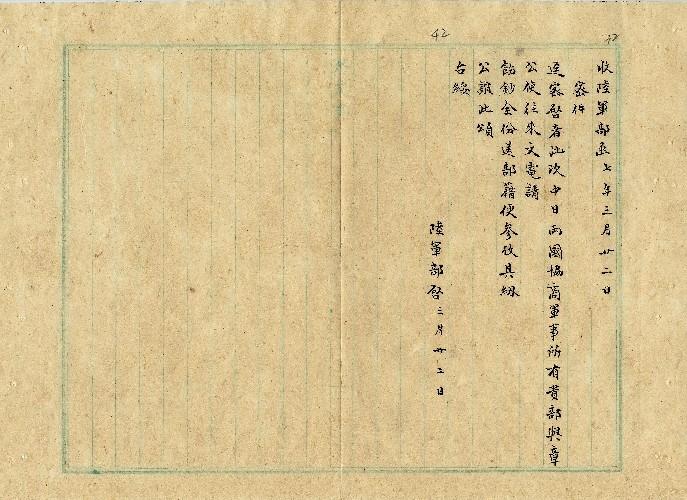 42
收陸軍部函七年三月廿二日
密件
逕密啓者此次中日兩國協商軍事所有貴部與章
公使往來文電請
飭鈔全份送部藉便參攷其紉
公誼此頌
台綏
陸軍部啓三月廿二日